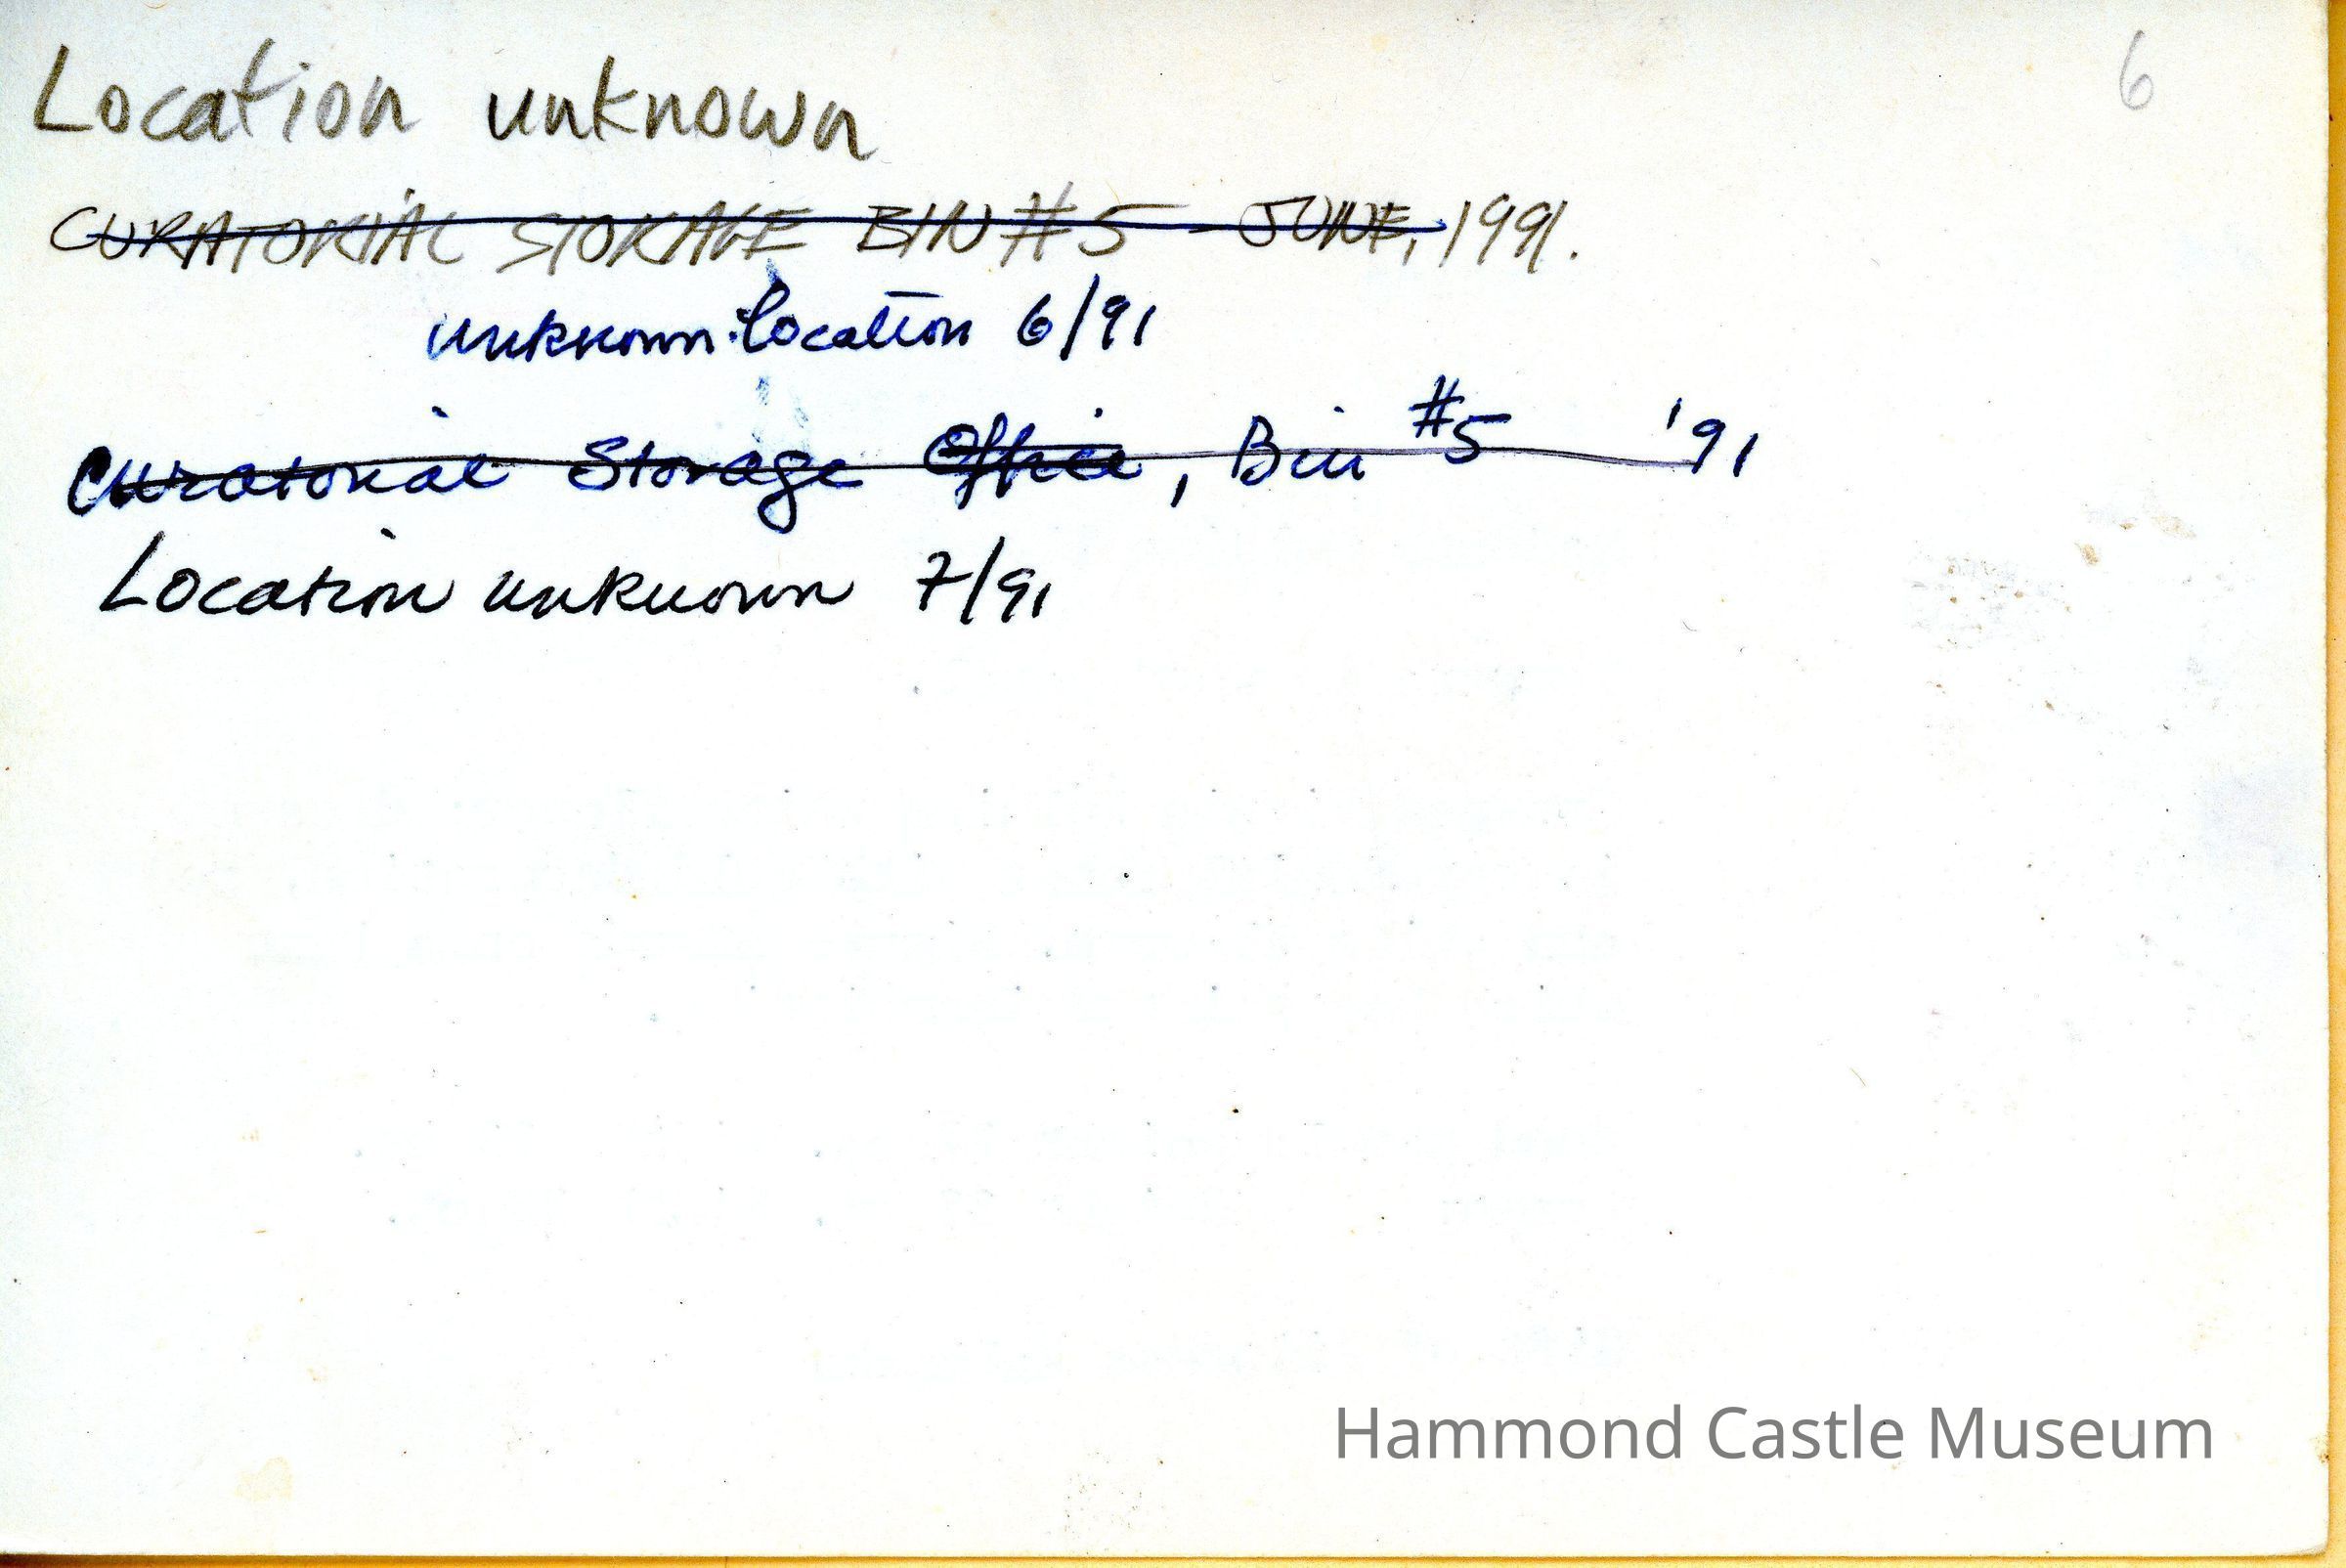 Location unknown
6
CURATORIAL STORAGE BIN #5 - JUNE, 1991.
unknown location 6/91
Curatorial Storage Office, Bin #5 '91
Location unknown 7/91
Hammond Castle Museum